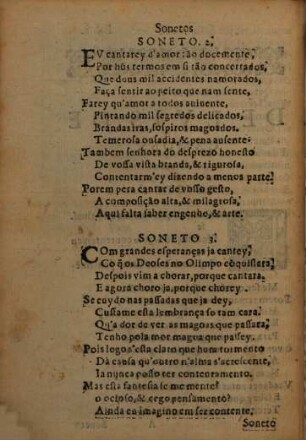 Sonetos
SONETO. 2.
EV cantarey d'amor tão docemente,
Por hũs termos em si tão concertados,
Que dous mil accidentes namorados,
Faça sentir ao peito que nam sente,
Farey qu'amor a todos auiuente,
Pintando mil segredos delicados,
Brandas iras, sospiros magoados.
Temerosa ousadia, & pena ausente:
Tambem senhora do desprezo honesto
De vossa vista branda, & rigurosa,
Contentarm'ey dizendo a menos parte,
Porem pera cantar de vosso gesto,
A composição alta, & milagrosa,
Aqui falta saber engenho, & arte.
SONETO 3.
Com grandes esperanças ja cantey,
Cõ q̃ os Deoses no Olimpo cõquistara;
Despois vim a chorar, porque cantara,
E agora choro ja, porque chorey.
Se cuydo nas passadas que ja dey,
Custame esta lembrança so tam cara,
Qu'a dor de ver as magoas que passara,
Tenho pola mor magua que passey.
Pois logo s'esta claro que hum tormento
Dâ causa qu'outro n'alma s'acrescente,
Ia nunca posso ter contentamento.
Mas esta fantesia se me mente?
o ocioso, & cego pensamento?
Ainda eu imagino em ser contente,
Soneto